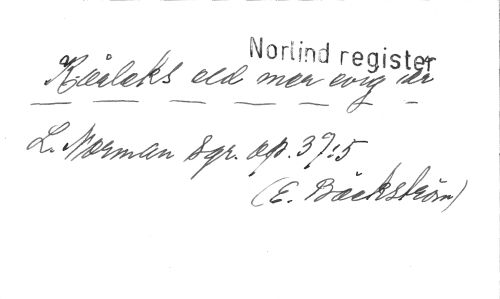 Norlind register
Kärleks eld mer evig är
L. Norman Sgr. op. 37:5
(E. Bäckström)